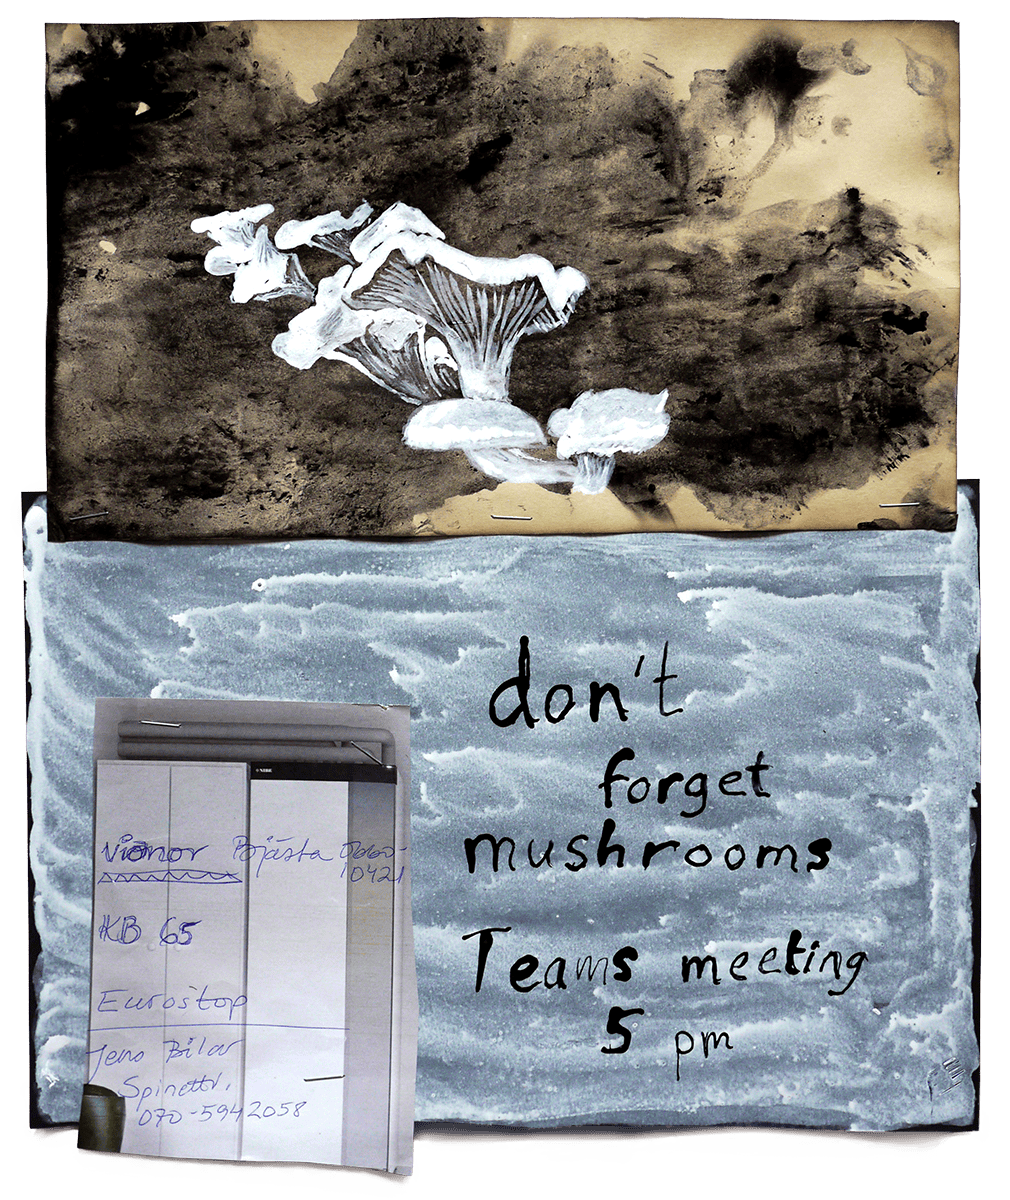 don't
forget
mushrooms
Teams meeting
5 pm
NIBE
Vianor Bjästa 0660-
10421
KB 65
Eurostop
Jens Bilar
Spinettv.
070-5942058